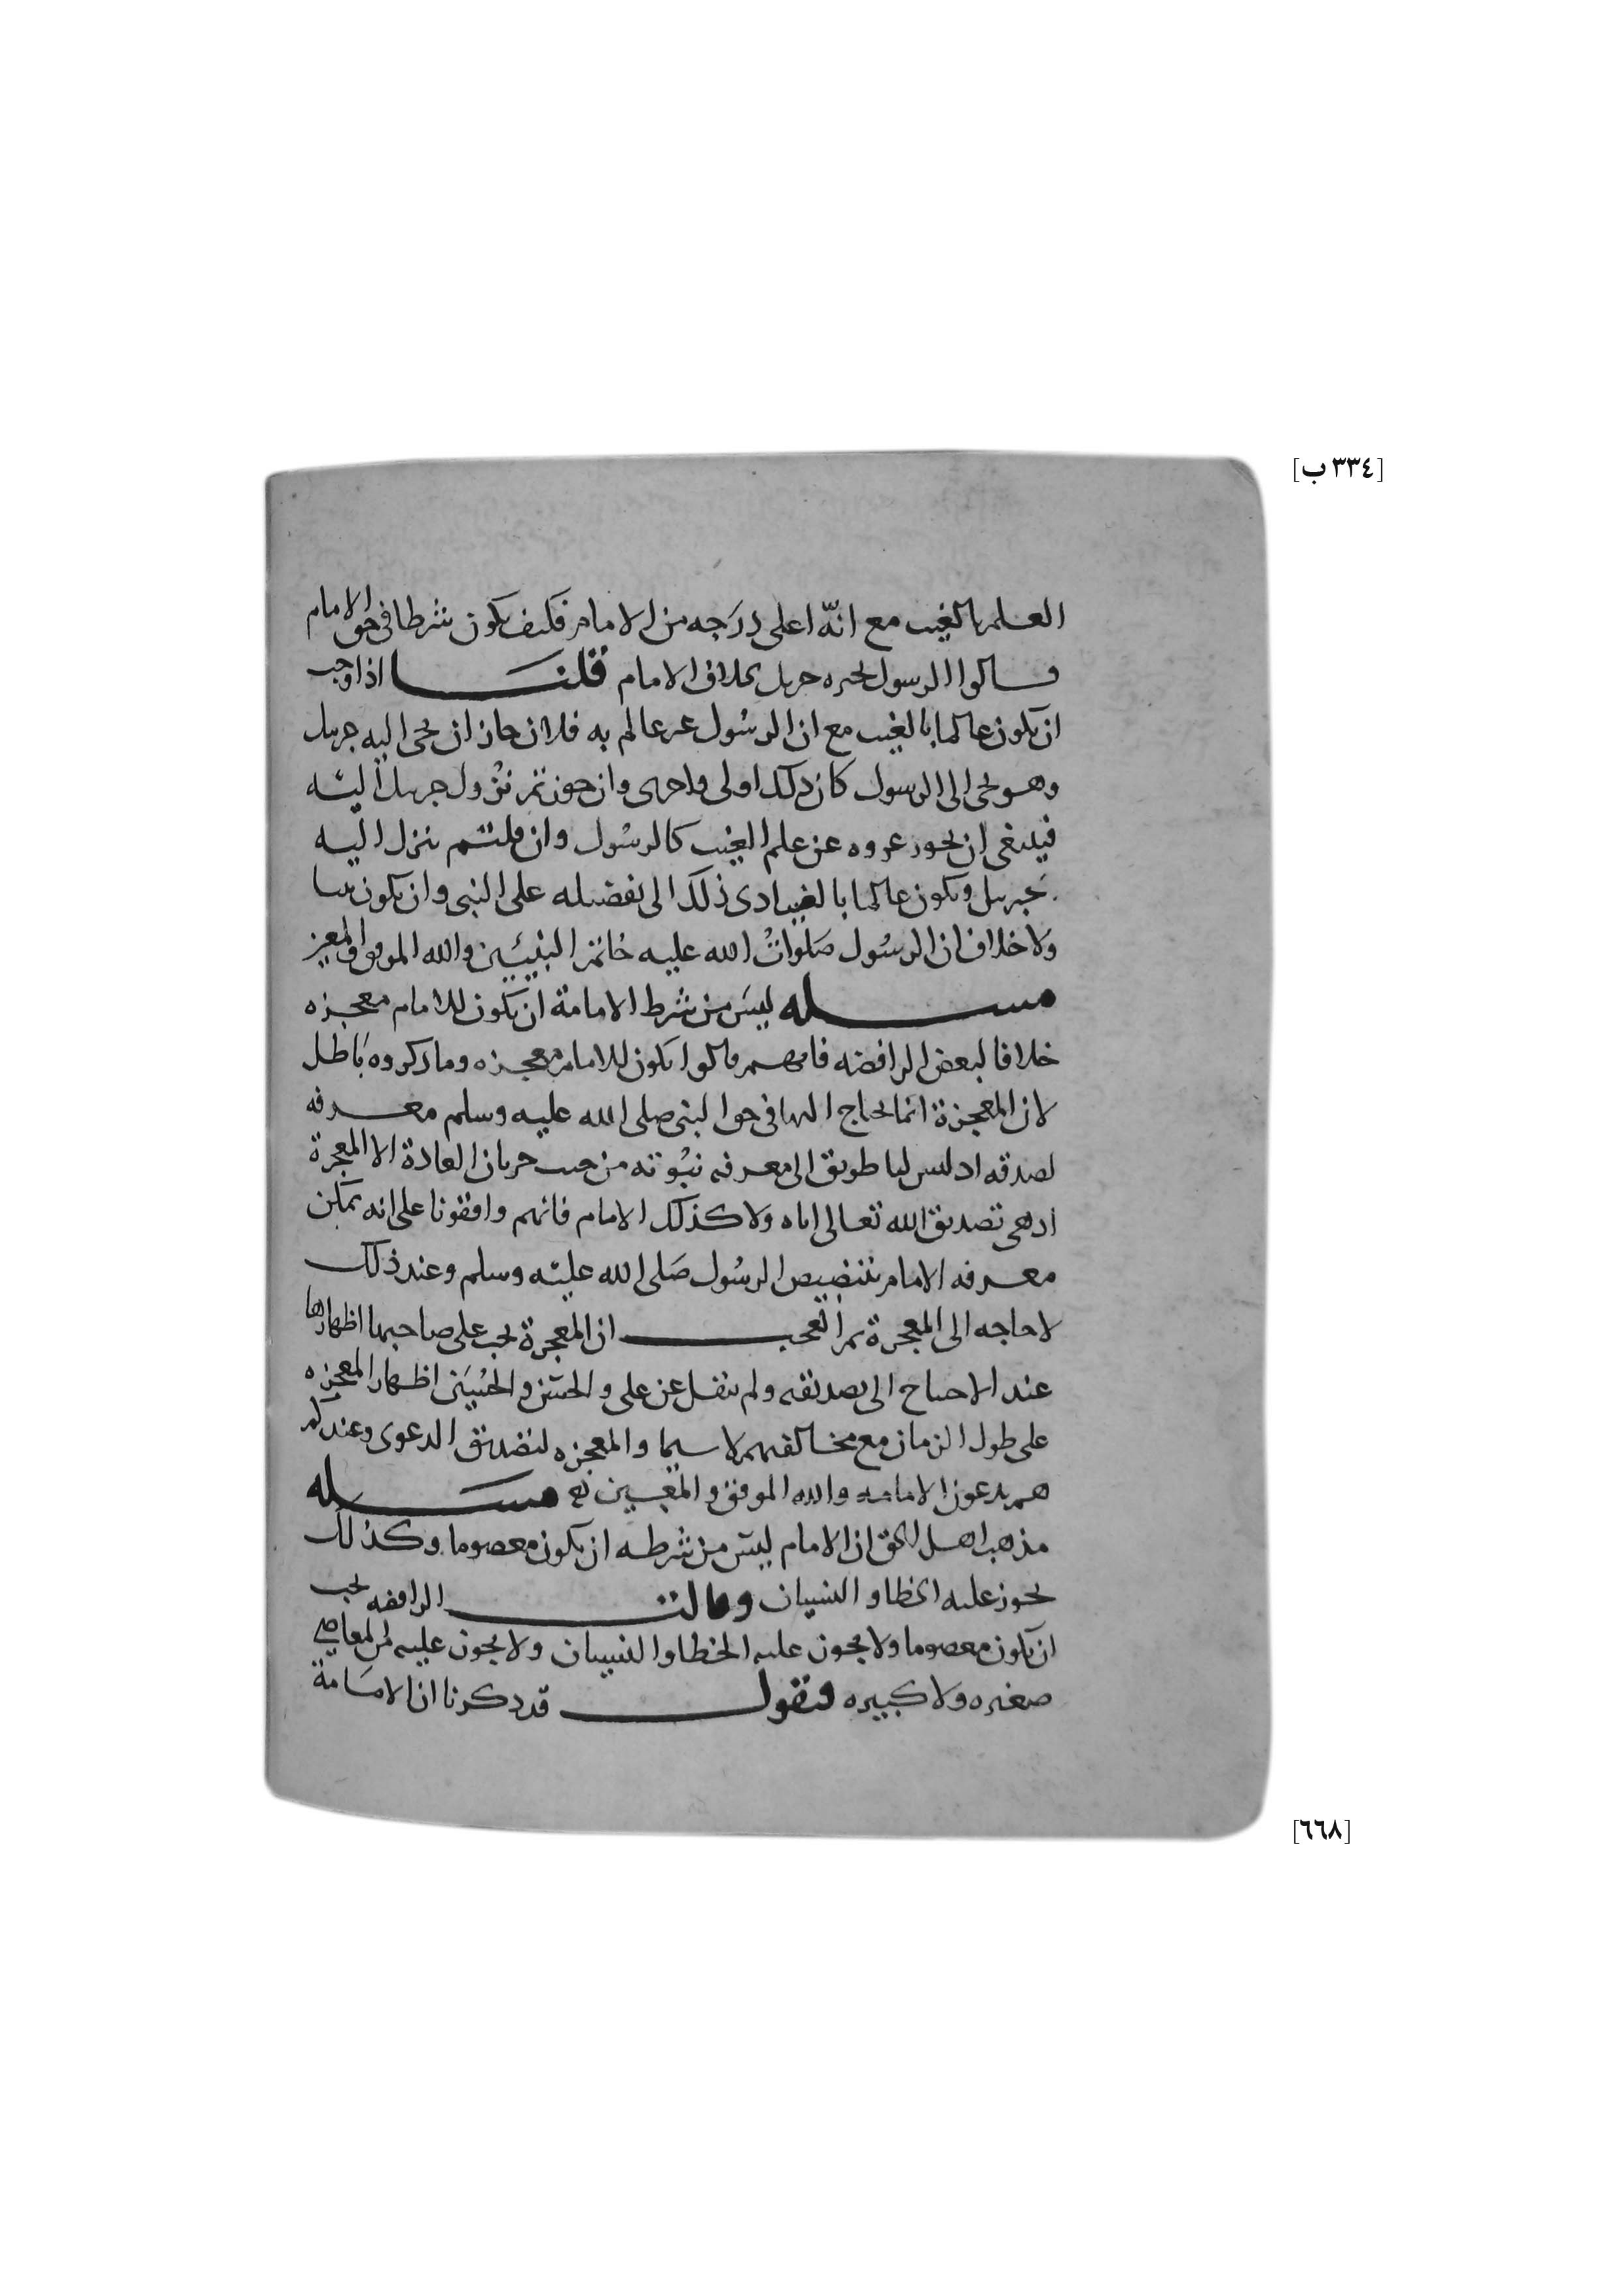 [٣٣٤ ب]
العلم بالغيب مع انّه اعلى درجه من الامام فكيف يكون شرطا في حق الامام
قالوا الرسول يخبره جبريل بخلاف الامام قلنا اذا وجب
ان يكون عالما بالغيب مع ان الرسول غير عالم به فلان جاز ان يجي اليه جبريل
وهو يجي الى الرسول كان ذلك اولى واحرى وان جوزتم نزول جبريل اليه
فينبغي ان يجوز عروه عن علم الغيب كالرسول وان قلتم ينزل اليه
جبريل ويكون عالما بالغيب ادى ذلك الى تفضيله على النبي وان يكون نبيا
ولا خلاف ان الرسول صلوات الله عليه خاتم النبيين والله الموفق والمعين
مسله ليس من شرط الامامة ان يكون للامام معجزه
خلافا لبعض الرافضه فانهم قالوا يكون للامام معجزه وما ذكروه باطل
لان المعجزة انما يحتاج اليها في حق النبي صلى الله عليه وسلم معرفه
لصدقه اذ ليس لنا طريق الى معرفه نبوته من حيث جريان العادة الا المعجزة
اذ هي تصديق الله تعالى اياه ولا كذلك الامام فانهم وافقونا على انه يمكن
معرفه الامام بتنصيص الرسول صلى الله عليه وسلم وعند ذلك
لا حاجه الى المعجزة ثم العجب ان المعجزة يجب على صاحبها اظهارها
عند الاحتياج الى تصديقه ولم ينقل عن علي والحسن والحسين اظهار المعجزه
على طول الزمان مع مخالفتهم لا سيما والمعجزه لتصديق الدعوى وعندكم
هم يدعون الامامه والله الموفق والمعين مسله
مذهب اهل الحق ان الامام ليس من شرطه ان يكون معصوما وكذلك
يجوز عليه الخطا والنسيان وقالت الرافضه يجب
ان يكون معصوما ولا يجوز عليه الخطا والنسيان ولا يجوز عليه من المعاصي
صغيره ولا كبيره فنقول قد ذكرنا ان الامامة
[٦٦٨]